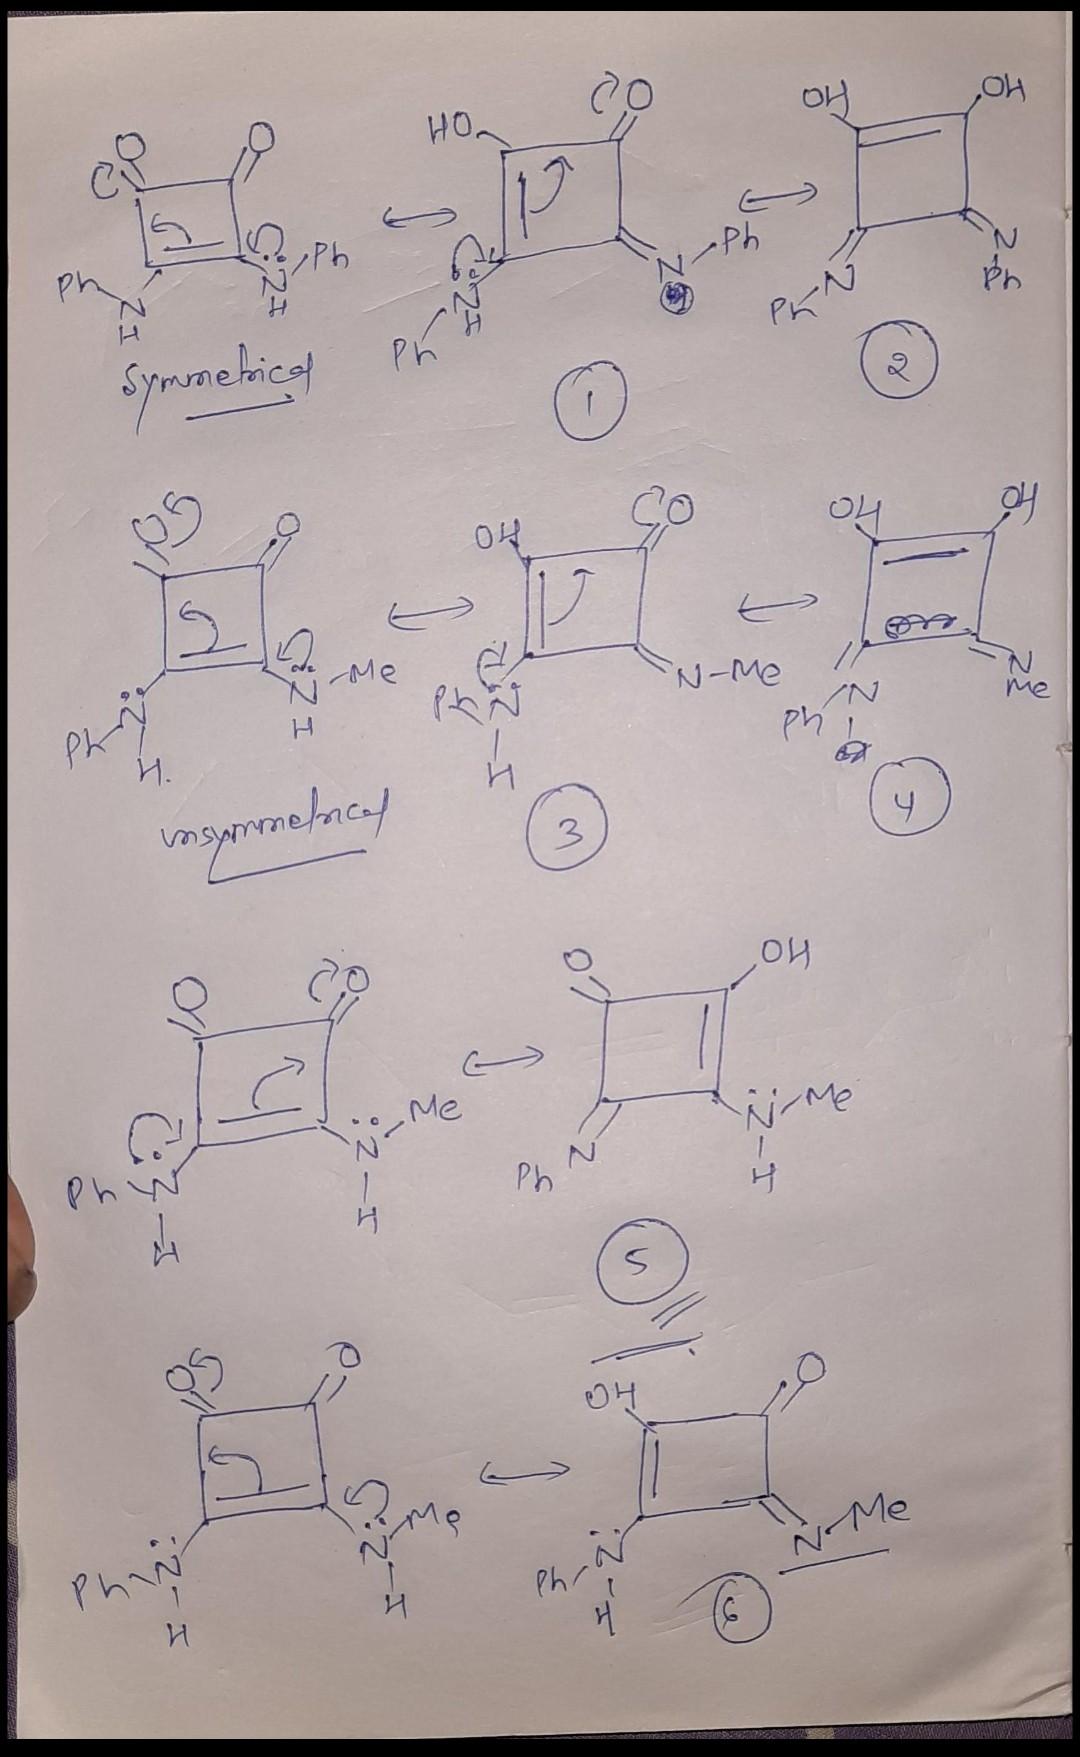 O O HO O OH OH
Ph N H N H Ph Ph N H N Ph Ph N N Ph
Symmetrical 1 2
O O OH O OH OH
Ph N H N H Me Ph N H N-Me Ph N N Me
unsymmetrical 3 4
O O O OH
Ph N H N H Me Ph N N H Me
5
O O OH O
Ph N H N H Me Ph N H N Me
6